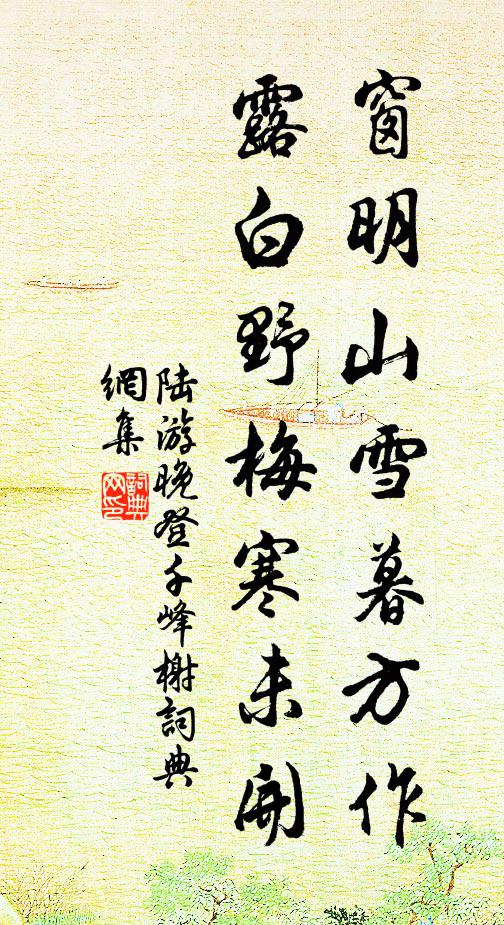 窗明山雪暮方作
露白野梅寒未開
陸游晚登千峰榭詞典
網集
詞典
网印